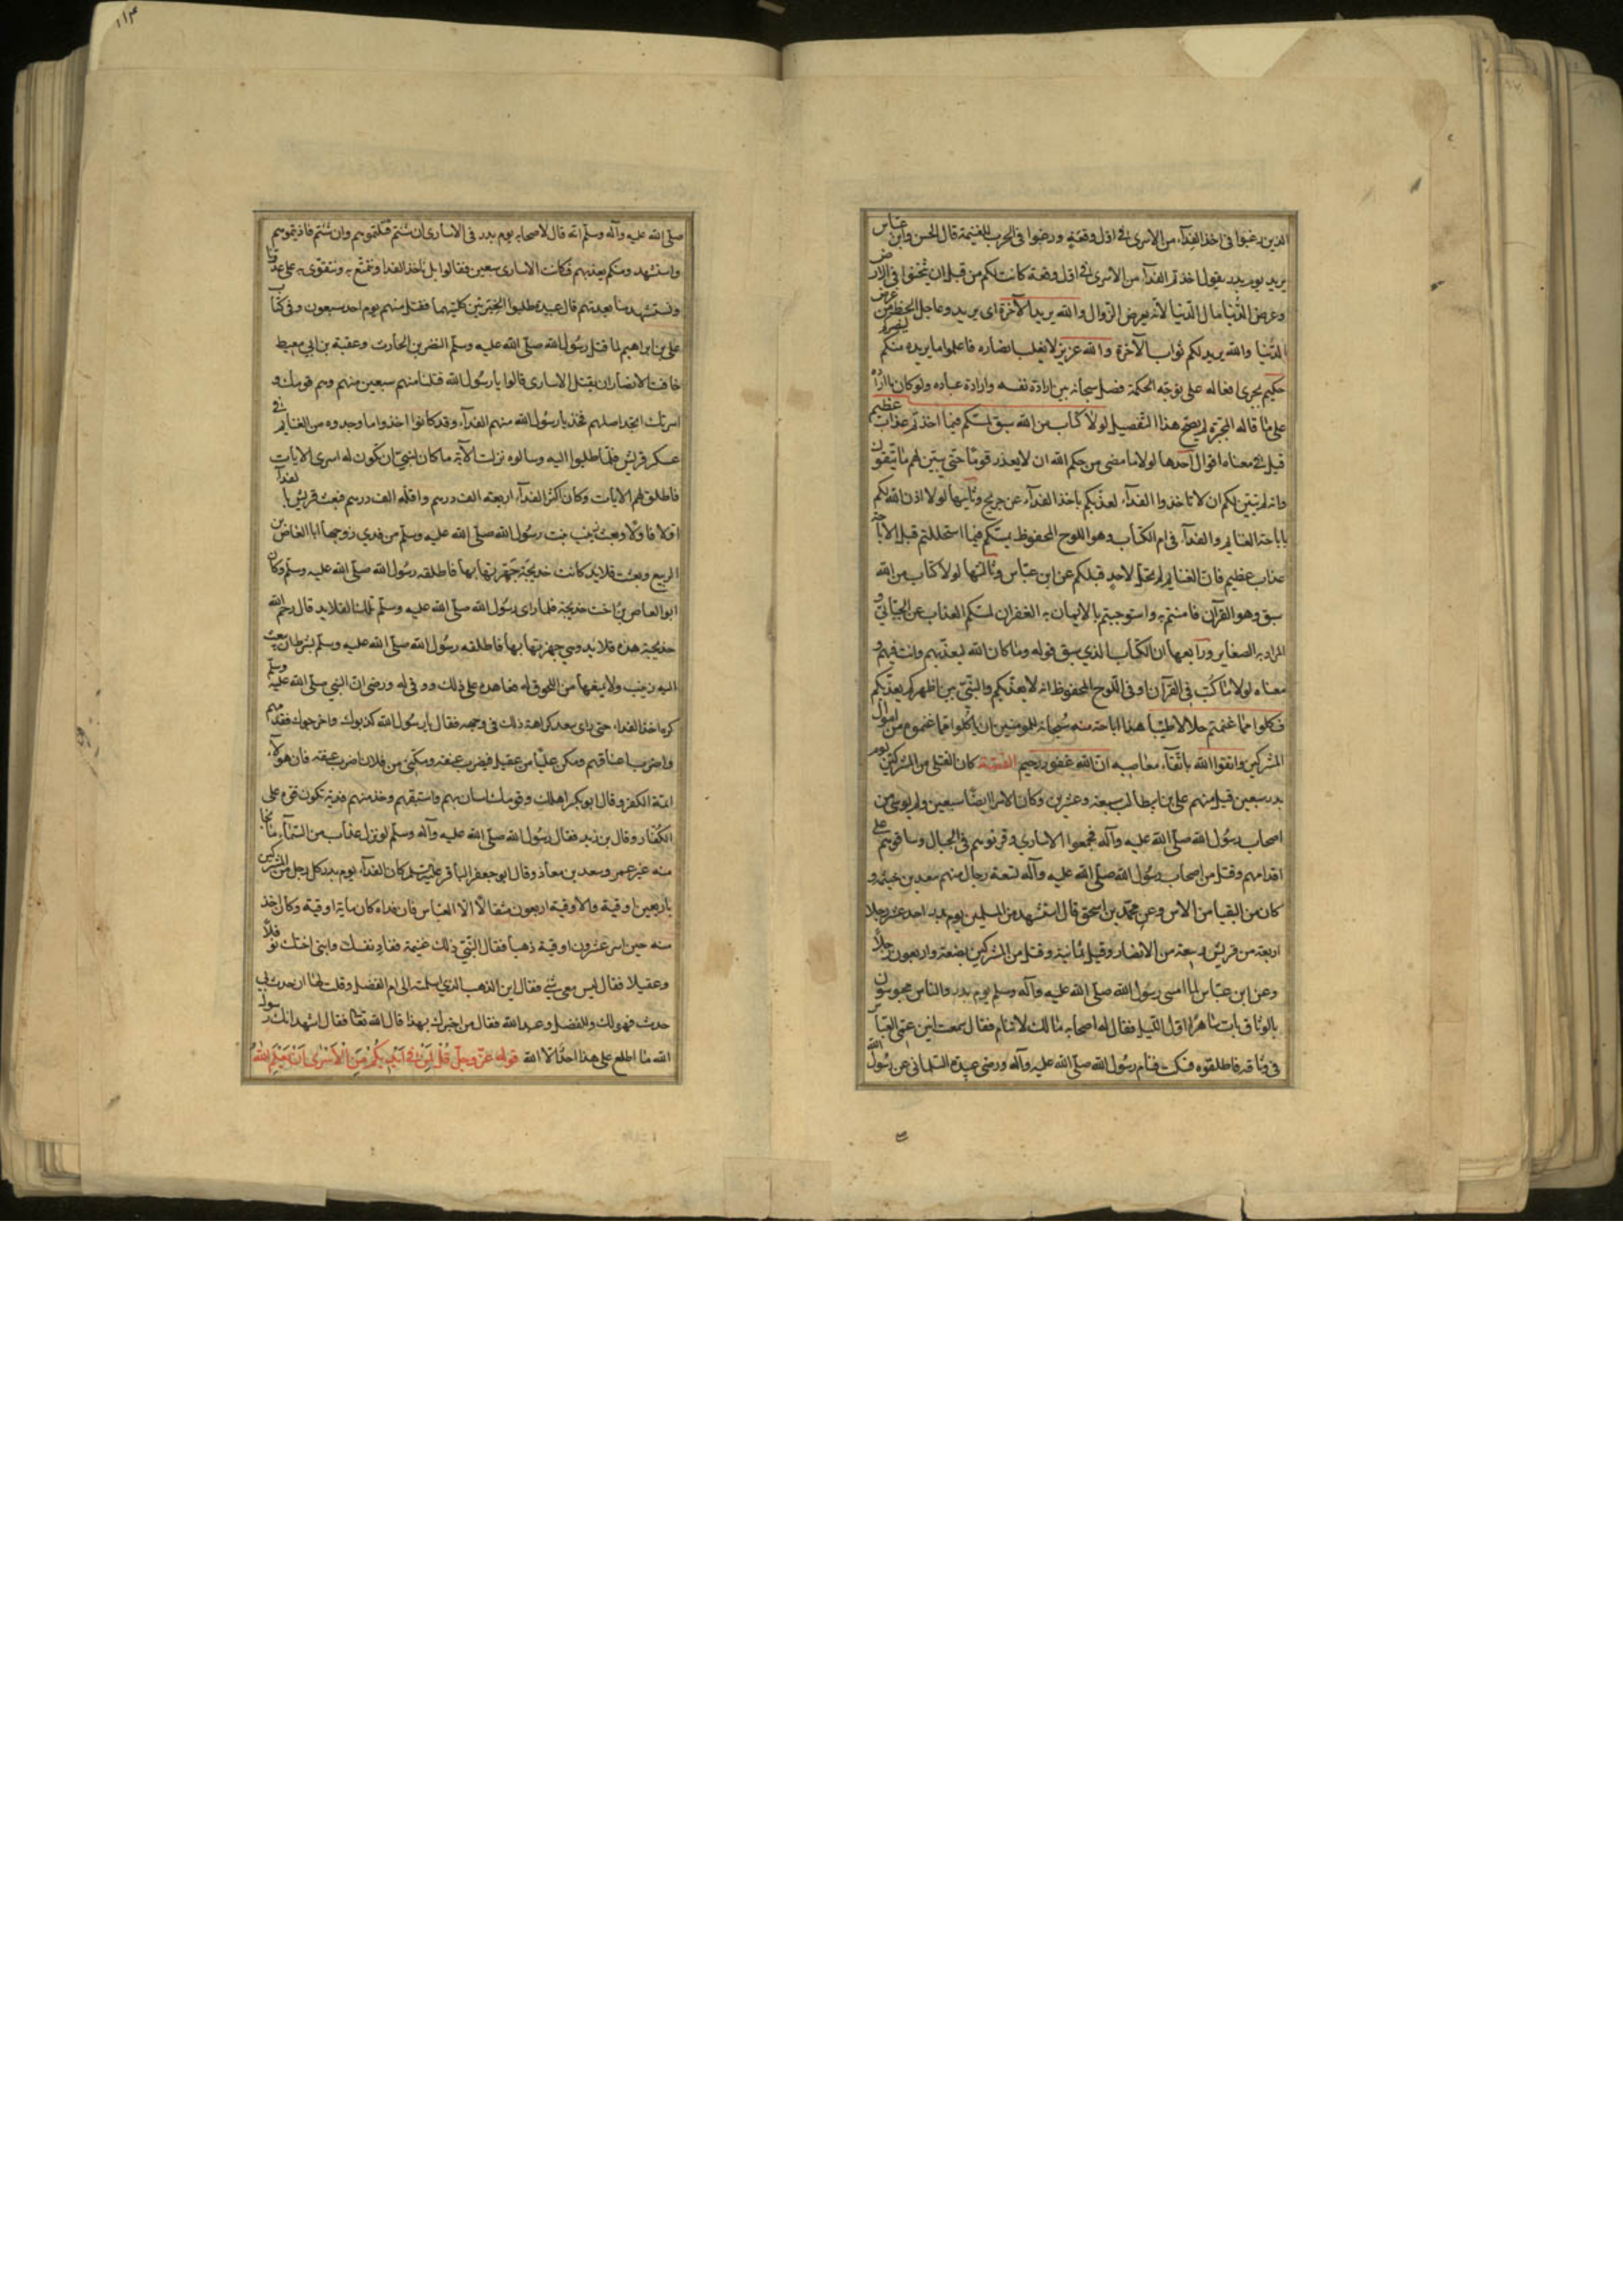 الذين رغبوا في اخذ الفداء من الاسرى في اول وقعة ورغبوا في الحرب للغنيمة قال الحسن وابن عباس
يريد يوم بدر يقول اخذتم الفداء من الاسرى في اول وقعة كانت لكم من قبل ان تثخنوا في الارض
وعرض الدنيا مال الدنيا لانه بعرض الزوال والله يريد الآخرة اى يريد وعاجل الحظ من عرض
الدنيا والله يريد لكم ثواب الآخرة والله عزيز لا يغلب انصاره فاعلموا ما يريده منكم لينصركم
حكيم يجرى افعاله على توجبه الحكمة فصل سبحانه بين ارادة نفسه وارادة عباده ولو كان ما اراده
على ما قاله المجبرة لم يصح هذا التفصيل لولا كتاب من الله سبق لمسكم فيما اخذتم عذاب عظيم
قيل في معناه اقوال احدها لولا ما مضى من حكم الله ان لا يعذر قوما حتى يبين لهم ما يتقون
وانه لم يبين لكم ان لا تاخذوا الفداء لعذبكم باخذ الفداء عن جريج وثانيها لولا اذن الله لكم
باباحة الغنايم والفداء في ام الكتاب وهو اللوح المحفوظ لمسكم فيما استحللتم قبل الاباحة
عذاب عظيم فان الغنايم لم تحل لاحد قبلكم عن ابن عباس وثالثها لولا كتاب من الله
سبق وهو القرآن فامنتم به واستوجبتم بالايمان به الغفران لمسكم العذاب عن الجبائي و
المراد به الصغاير ورابعها ان الكتاب الذي سبق قوله وما كان الله ليعذبهم وانت فيهم و
معناه لولا ما كتب في القرآن او في اللوح المحفوظ انه لا يعذبكم والنبي بين اظهركم يعذبكم
فكلوا مما غنمتم حلالا طيبا هذا اباحة منه سبحانه للمومنين ان ياكلوا مما غنموه من اموال
المشركين واتقوا الله باتقاء معاصيه ان الله غفور رحيم القصة كان القتلى من المشركين يوم
بدر سبعين قتل منهم على بن ابيطالب سبعة وعشرين وكان الاسرا ايضا سبعين ولم يوسر من
اصحاب رسول الله صلى الله عليه وآله فجمعوا الاسارى وقرنوهم في الحبال وساقوهم على
اقدامهم وقتل من اصحاب رسول الله صلى الله عليه وآله تسعة رجال منهم سعد بن خيثمة و
كان من النقبا من الاس وعن محمد بن اسحق قال استشهد من المسلمين يوم بدر احد عشر رجلا
اربعة من قريش سبعة من الانصار وقيل ثمانية وقتل من المشركين بضعة واربعون رجلا
وعن ابن عباس لما امسى رسول الله صلى الله عليه وآله وسلم يوم بدر والناس محبوسون
بالوثاق بات ساهرا اول الليل فقال له اصحابه مالك لا تنام فقال سمعت انين عمى العباس
في وثاقه فاطلقوه فسكت فنام رسول الله صلى الله عليه وآله وروى عبيدة السلمانى عن رسول الله
١١٣
صلى الله عليه وآله وسلم انه قال لاصحابه يوم بدر في الاسارى ان شئتم قتلتموهم وان شئتم فاديتموهم
واستشهد ومنكم بعدتهم فكانت الاسارى سبعين فقالوا بل ناخذ الفدا ونتمتع به ونتقوى به على عدونا
ونستشهد منا بعدتهم قال عبيدة طلبوا الخيرتين كليتهما فقتل منهم يوم احد سبعون وفى كتاب
على بن ابراهيم لما قتل رسول الله صلى الله عليه وسلم النضر بن الحارث وعقبة بن ابي معيط
خافت الانصار ان يقتل الاسارى قالوا يا رسول الله قتلنا منهم سبعين وهم قومك و
اسرتك اتجد اصلهم فخذ يا رسول الله منهم الفداء وقد كانوا اخذوا ما وجدوه من الغنايم في
عسكر قريش فلما طلبوا اليه وسالوه نزلت الآية ما كان لنبي ان تكون له اسرى الايات
فاطلق لهم الايات وكان اكثر الفداء اربعة الف درهم واقله الف درهم فبعث قريش بالفداء
اولا فاولا وبعث زينب بنت رسول الله صلى الله عليه وسلم من فدي زوجها ابا العاص بن
الربيع وبعثت قلايد كانت خديجة جهزتها بها فاطلقه رسول الله صلى الله عليه وسلم وكان
ابو العاص بن اخت خديجة فلما راى رسول الله صلى الله عليه وسلم تلك القلايد قال رحم الله
خديجة هذه قلايد وهي جهزتها بها فاطلقه رسول الله صلى الله عليه وسلم بشرط ان يبعث
اليه زينب ولا يمنعها من اللحوق له فعاهده على ذلك ووفى له وروى ان النبي صلى الله عليه وسلم
كره اخذ الفداء حتى راى سعد كراهة ذلك في وجهه فقال يا رسول الله كذبوك واخرجوك فقدمهم
واضرب اعناقهم ومكن عليا من عقيل فيضرب عنقه ومكنى من فلان اضرب عنقه فان هولآء
ائمة الكفر وقال ابو بكر اهلك وقومك استان بهم واستبقهم وخذ منهم فدية تكون قوة على
الكفار وقال بن زيد فقال رسول الله صلى الله عليه وآله وسلم لو نزل عذاب من السماء ما نجا
منه غير عمر وسعد بن معاذ وقال ابو جعفر الباقر عليه السلم كان الفداء يوم بدر كل رجل من المشركين
باربعين اوقية والاوقية اربعون مثقالا الا العباس فان فداه كان ماية اوقية وكان اخذ
منه حين اسر عشرون اوقية ذهبا فقال النبي ذلك غنيمة ففاد نفسك وابنى اختك نوفلا
وعقيلا فقال ليس معى شئ فقال اين الذهب الذي اسلمته الى ام الفضل وقلت لها ان حدث بي
حدث فهو لك وللفضل وعبد الله فقال من اخبرك بهذا قال الله تعا فقال اشهد انك رسول
الله ما اطلع على هذا احد الا الله قوله عز وجل قُلْ لِمَنْ فِي اَيْدِيكُمْ مِنَ الْاَسْرَى اِنْ يَعْلَمِ اللهُ